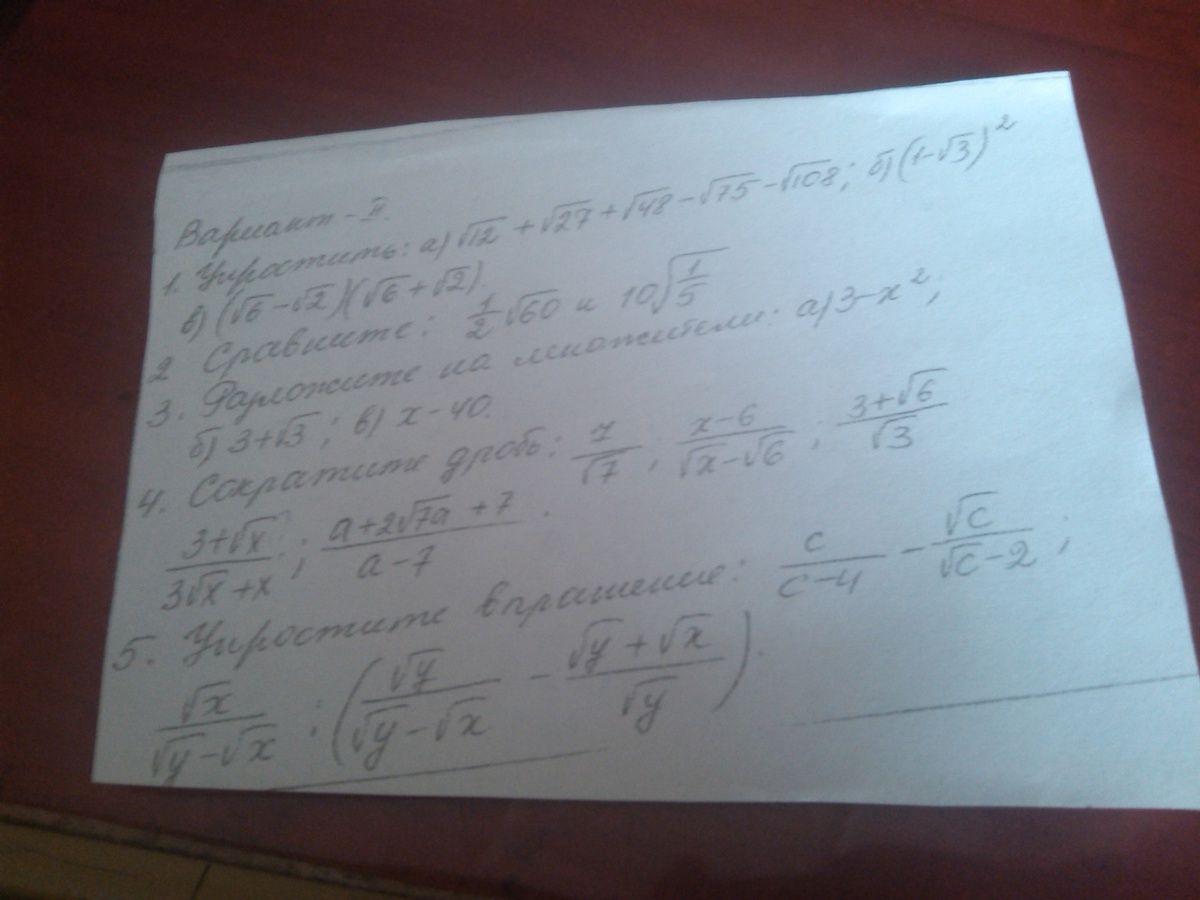 Вариант - II.
1. Упростить: а) √12 + √27 + √48 - √75 - √108; б) (1-√3)²
в) (√6 - √2)(√6 + √2).
2 Сравните: 1/2 √60 и 10√(1/5)
3. Разложите на множители: а) 3-x²;
б) 3+√3; в) x-40.
4. Сократите дробь: 7/√7; (x-6)/(√x-√6); (3+√6)/√3
(3+√x)/(3√x+x); (a+2√7a+7)/(a-7).
5. Упростите выражение: c/(c-4) - √c/(√c-2);
√x/(√y-√x) : (√y/(√y-√x) - (√y+√x)/√y).